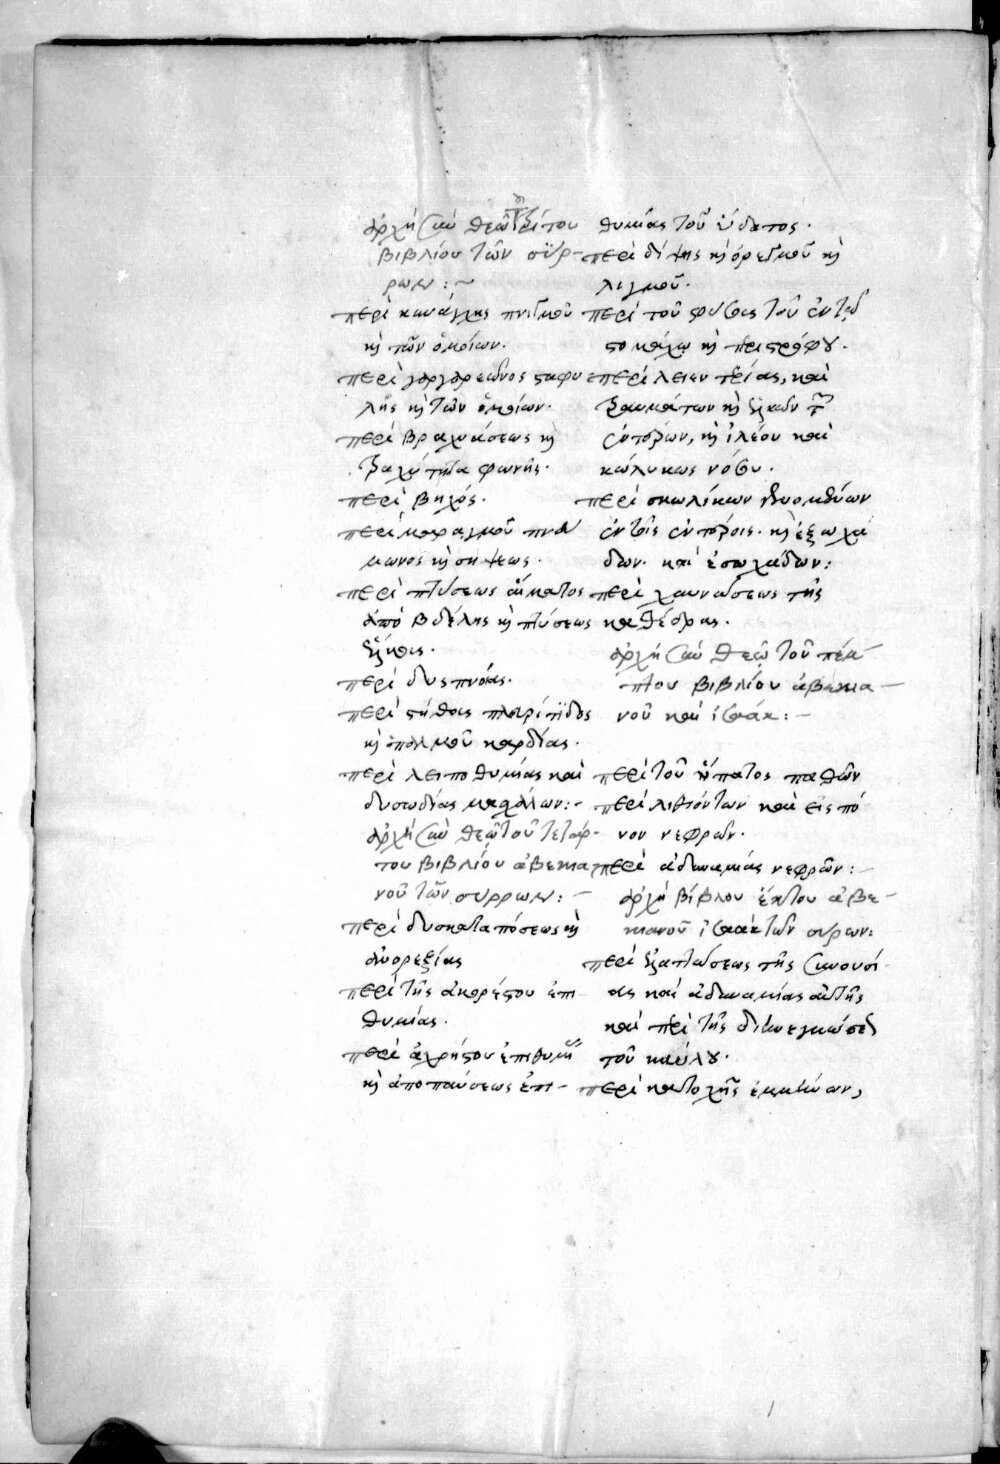 ἀρχὴ σὺν θεῷ τοῦ τρίτου
βιβλίου τῶν σύρ-
ρων :~
περὶ κυνάγχης πνιγμοῦ
κὴ τῶν ὁμοίων.
περὶ γαργαρεῶνος σταφυ
λῆς κὴ τῶν ὁμοίων.
περὶ βραγχώσεως κὴ
φωνῆς.
περὶ βηχός.
περὶ
μωνος κὴ σήψεως.
περὶ πτύσεως αἵματος
ἀπὸ βδέλης κὴ πτύσεως
περὶ δυσπνοίας.
περὶ στήθους πλευρίτιδος
κὴ παλμοῦ καρδίας.
περὶ λειποθυμίας καὶ
δυσωδίας μασχάλων :-
ἀρχὴ σὺν θεῷ τοῦ τετάρ-
του βιβλίου ἀβεκια
νοῦ τῶν σύρρων :-
περὶ δυσκαταπόσεως κὴ
ἀνορεξίας
περὶ τῆς ἀκορέστου ἐπι
θυμίας.
περὶ ἀχρήστου ἐπιθυμ
κὴ ἀποπαύσεως ἐπι-
θυμίας τοῦ ὕδατος.
περὶ δίψης κὴ ἐρευγμοῦ κὴ
λυγμοῦ.
περὶ τοῦ
στομάχω κὴ περὶ στρόφου.
περὶ λειεντερίας, καὶ
τραυμάτων κὴ ἑλκῶν τ
ἐντέρων, κὴ ἰλέου καὶ
κώλυκως νόσου.
περὶ σκωλίκων φυομένων
ἐν τοῖς ἐντέροις. κὴ ἐξωχά
δων. καὶ ἐσωχάδων :
περὶ χαυνώσεως τῆς
καθέδρας.
ἀρχὴ σὺν θεῷ τοῦ πέμ-
πτου βιβλίου ἀβεκια-
νοῦ καὶ ἰσαάκ :-
περὶ τοῦ ἥπατος παθῶν
περὶ λιθιόντων καὶ εἰς πό
νον νεφρῶν.
περὶ ἀδυναμίας νεφρῶν :-
ἀρχὴ βίβλου ἕκτου ἀβε-
κιανοῦ ἰσαὰκ τῶν σύρων :
περὶ ἐλαττώσεως τῆς συνουσί-
ας καὶ ἀδυναμίας αὐτῆς
καὶ περὶ τῆς
τοῦ καυλοῦ.
περὶ κατοχῆς ἐμμηνίων,